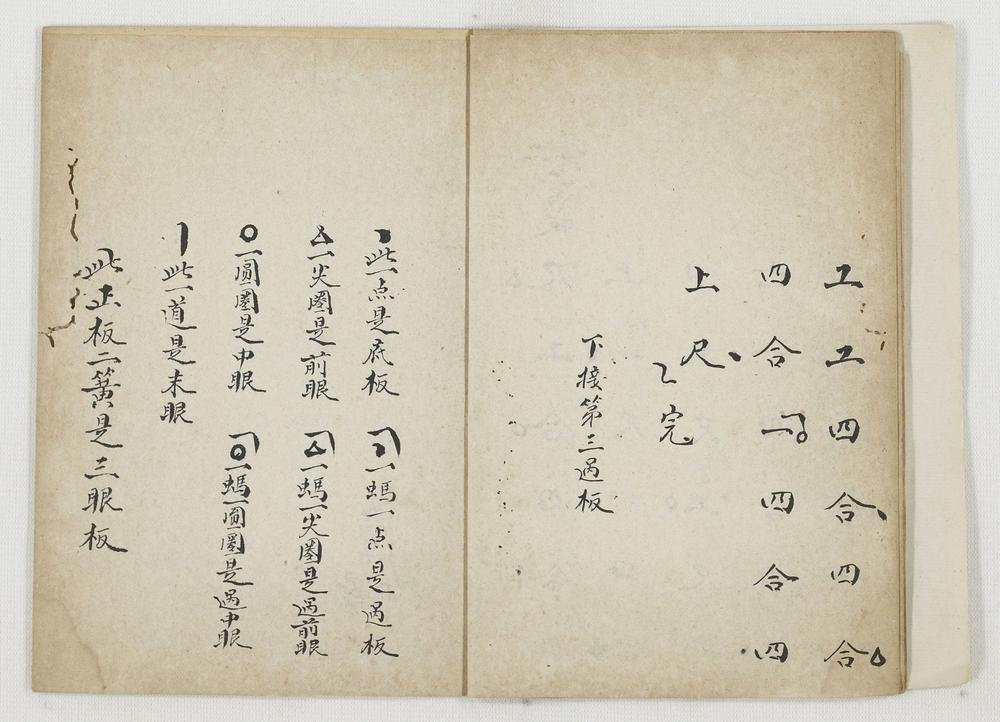 工工四合、四合△
四合一㇕○四合四
上尺、
乙完
下接第三過板
、此一点是底板
㇕、一螞一点是過板
△一尖圈是前眼
㇕△一螞一尖圈是過前眼
○一圓圈是中眼
㇕○一螞一圓圈是過中眼
丨此一道是末眼
此正板二簧是三眼板